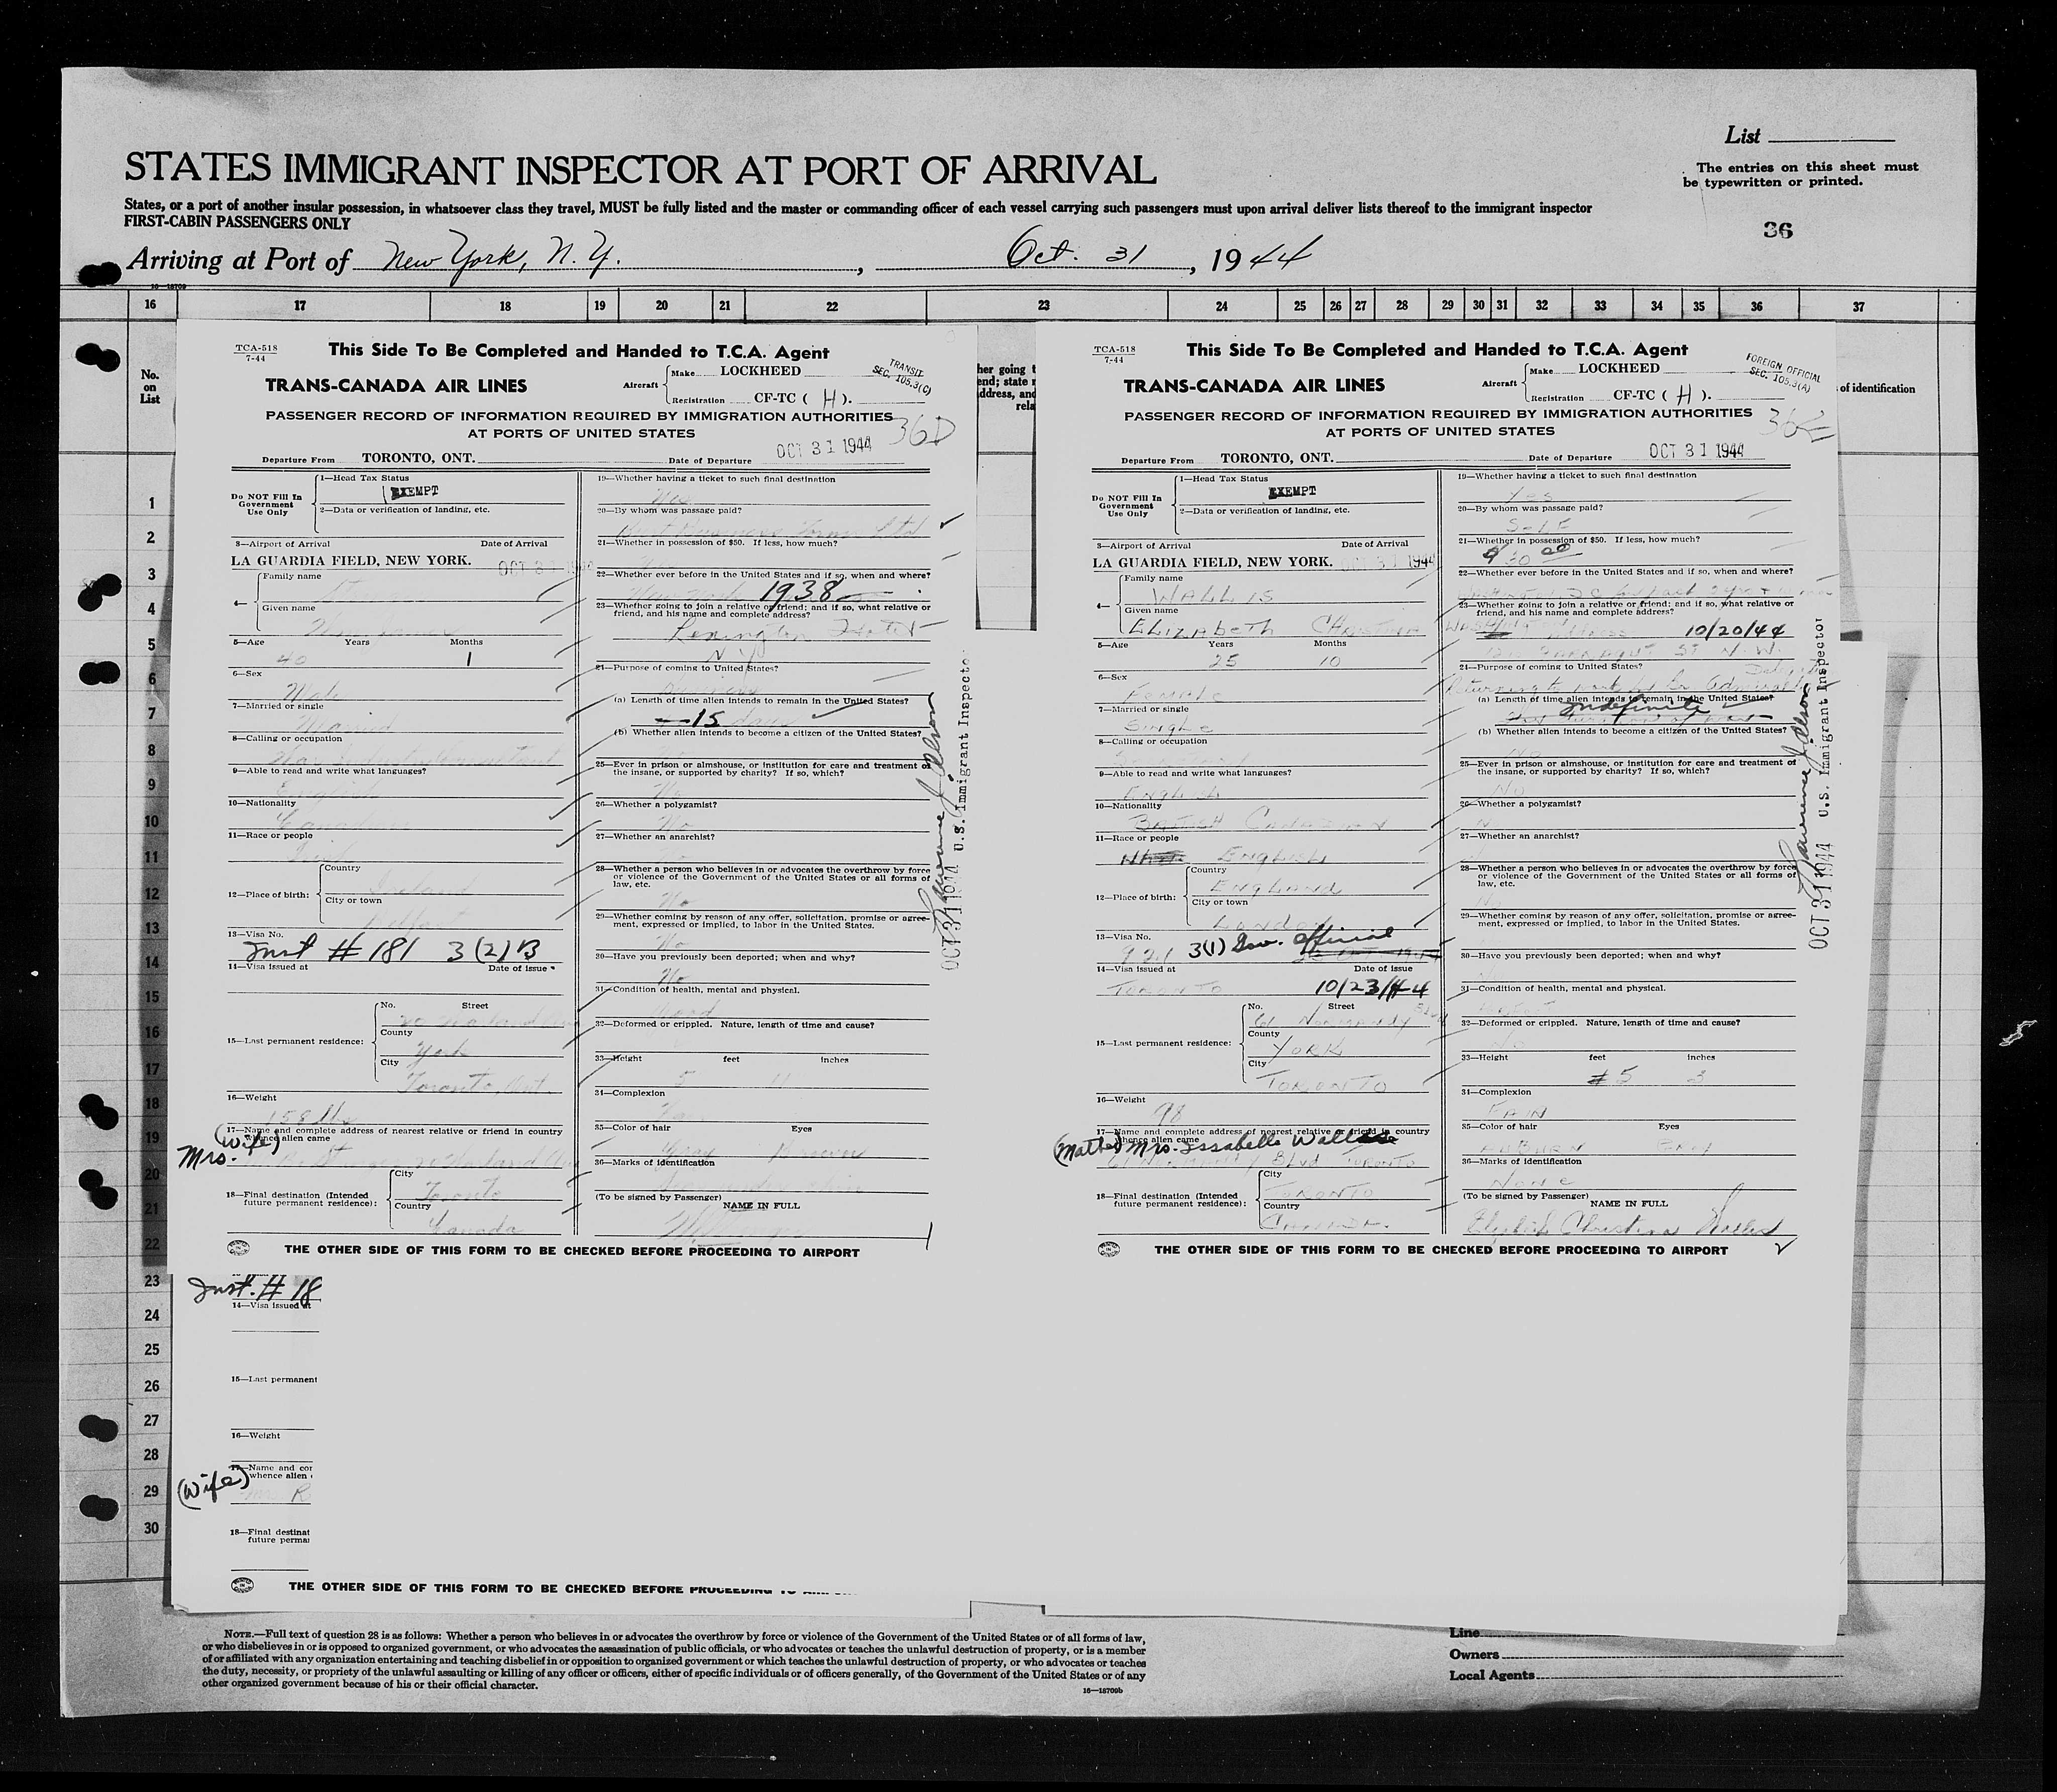 List
STATES IMMIGRANT INSPECTOR AT PORT OF ARRIVAL
The entries on this sheet must
be typewritten or printed.
States, or a port of another insular possession, in whatsoever class they travel, MUST be fully listed and the master or commanding officer of each vessel carrying such passengers must upon arrival deliver lists thereof to the immigrant inspector
FIRST-CABIN PASSENGERS ONLY
36
Arriving at Port of New York, N. Y. , Oct. 31 , 1944
16—18709
16 17 18 19 20 21 22 23 24 25 26 27 28 29 30 31 32 33 34 35 36 37
No.
on
List
her going t
end; state r
ddress, and
rela
of identification
1
2
3
4
5
6
7
8
9
10
11
12
13
14
15
16
17
18
19
20
21
22
23
24
25
26
27
28
29
30
TCA-518
7-44
This Side To Be Completed and Handed to T.C.A. Agent
TRANSIT
SEC. 105.3(C)
TRANS-CANADA AIR LINES
Aircraft
Make LOCKHEED
Registration CF-TC ( H ).
PASSENGER RECORD OF INFORMATION REQUIRED BY IMMIGRATION AUTHORITIES
AT PORTS OF UNITED STATES
36D
Departure From TORONTO, ONT. Date of Departure OCT 31 1944
Do NOT Fill In
Government
Use Only
1—Head Tax Status
EXEMPT
2—Data or verification of landing, etc.
3—Airport of Arrival Date of Arrival
LA GUARDIA FIELD, NEW YORK. OCT 31
4—
Family name
Given name
5—Age Years Months
40 1
6—Sex
Male
7—Married or single
Married
8—Calling or occupation
9—Able to read and write what languages?
English
10—Nationality
Canadian
11—Race or people
Irish
12—Place of birth:
Country
Ireland
City or town
Belfast
13—Visa No.
Inst # 181 3(2)B
14—Visa issued at Date of issue
15—Last permanent residence:
No. Street
County
York
City
Toronto, Ont.
16—Weight
158 lbs
17—Name and complete address of nearest relative or friend in country
whence alien came
(Wife)
Mrs.
18—Final destination (Intended
future permanent residence):
City
Toronto
Country
Canada
19—Whether having a ticket to such final destination
Yes
20—By whom was passage paid?
21—Whether in possession of $50. If less, how much?
22—Whether ever before in the United States and if so, when and where?
New York 1938
23—Whether going to join a relative or friend; and if so, what relative or
friend, and his name and complete address?
Lexington Hotel
N Y
24—Purpose of coming to United States?
Business
(a) Length of time alien intends to remain in the United States?
15 days
(b) Whether alien intends to become a citizen of the United States?
No
25—Ever in prison or almshouse, or institution for care and treatment of
the insane, or supported by charity? If so, which?
No
26—Whether a polygamist?
No
27—Whether an anarchist?
28—Whether a person who believes in or advocates the overthrow by force
or violence of the Government of the United States or all forms of
law, etc.
No
29—Whether coming by reason of any offer, solicitation, promise or agree-
ment, expressed or implied, to labor in the United States.
No
30—Have you previously been deported; when and why?
No
31—Condition of health, mental and physical.
Good
32—Deformed or crippled. Nature, length of time and cause?
33—Height feet inches
5 11
34—Complexion
Fair
35—Color of hair Eyes
Gray Brown
36—Marks of identification
(To be signed by Passenger) NAME IN FULL
THE OTHER SIDE OF THIS FORM TO BE CHECKED BEFORE PROCEEDING TO AIRPORT
OCT 31 1944 U.S. Immigrant Inspector
TCA-518
7-44
This Side To Be Completed and Handed to T.C.A. Agent
FOREIGN OFFICIAL
SEC. 105.3(A)
TRANS-CANADA AIR LINES
Aircraft
Make LOCKHEED
Registration CF-TC ( H ).
PASSENGER RECORD OF INFORMATION REQUIRED BY IMMIGRATION AUTHORITIES
AT PORTS OF UNITED STATES
36E
Departure From TORONTO, ONT. Date of Departure OCT 31 1944
Do NOT Fill In
Government
Use Only
1—Head Tax Status
EXEMPT
2—Data or verification of landing, etc.
3—Airport of Arrival Date of Arrival
LA GUARDIA FIELD, NEW YORK. OCT 31 1944
4—
Family name
WALLIS
Given name
ELIZABETH CHRISTINA
5—Age Years Months
25 10
6—Sex
Female
7—Married or single
Single
8—Calling or occupation
9—Able to read and write what languages?
English
10—Nationality
British Canadian
11—Race or people
English
12—Place of birth:
Country
England
City or town
London
13—Visa No.
921 3(1) Gov. Official
14—Visa issued at Date of issue
TORONTO 10/23/44
15—Last permanent residence:
No. Street
61 Normandy Blvd
County
YORK
City
TORONTO
16—Weight
98
17—Name and complete address of nearest relative or friend in country
whence alien came
(Mother) Mrs. Issabelle Wallis
61 Normandy Blvd TORONTO
18—Final destination (Intended
future permanent residence):
City
TORONTO
Country
CANADA.
19—Whether having a ticket to such final destination
Yes
20—By whom was passage paid?
Self
21—Whether in possession of $50. If less, how much?
$ 50 00
22—Whether ever before in the United States and if so, when and where?
23—Whether going to join a relative or friend; and if so, what relative or
friend, and his name and complete address?
10/20/44
24—Purpose of coming to United States?
(a) Length of time alien intends to remain in the United States?
Indefinite
(b) Whether alien intends to become a citizen of the United States?
No
25—Ever in prison or almshouse, or institution for care and treatment of
the insane, or supported by charity? If so, which?
No
26—Whether a polygamist?
27—Whether an anarchist?
28—Whether a person who believes in or advocates the overthrow by force
or violence of the Government of the United States or all forms of
law, etc.
29—Whether coming by reason of any offer, solicitation, promise or agree-
ment, expressed or implied, to labor in the United States.
30—Have you previously been deported; when and why?
31—Condition of health, mental and physical.
32—Deformed or crippled. Nature, length of time and cause?
No
33—Height feet inches
5 3
34—Complexion
FAIR
35—Color of hair Eyes
AUBURN GREY
36—Marks of identification
None
(To be signed by Passenger) NAME IN FULL
Elizabeth Christina Wallis
THE OTHER SIDE OF THIS FORM TO BE CHECKED BEFORE PROCEEDING TO AIRPORT
OCT 31 1944 U.S. Immigrant Inspector
Inst. # 18
14—Visa issued at
15—Last permanent
16—Weight
17—Name and cor
whence alien
(Wife)
18—Final destinat
future perma
THE OTHER SIDE OF THIS FORM TO BE CHECKED BEFORE PROCEEDING TO
NOTE.—Full text of question 28 is as follows: Whether a person who believes in or advocates the overthrow by force or violence of the Government of the United States or of all forms of law,
or who disbelieves in or is opposed to organized government, or who advocates the assassination of public officials, or who advocates or teaches the unlawful destruction of property, or is a member
of or affiliated with any organization entertaining and teaching disbelief in or opposition to organized government or which teaches the unlawful destruction of property, or who advocates or teaches
the duty, necessity, or propriety of the unlawful assaulting or killing of any officer or officers, either of specific individuals or of officers generally, of the Government of the United States or of any
other organized government because of his or their official character.
16—18709b
Line
Owners
Local Agents